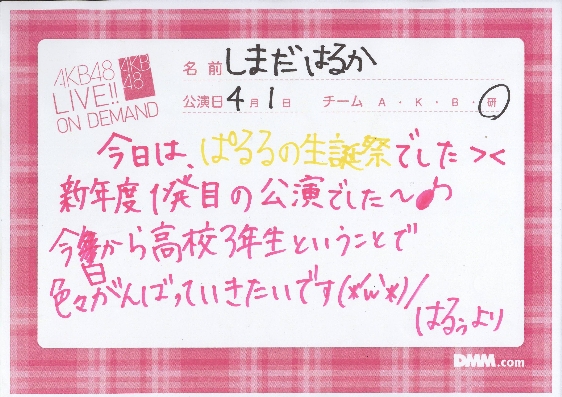 AKB48
LIVE!!
ON DEMAND
AKB
48
名前 しまだはるか
公演日 4月1日 チーム A・K・B・研
今日は、ぱるるの生誕祭でした><
新年度1発目の公演でした〜♪
今日から高校3年生ということで
色々がんばっていきたいです(*'ω'*)/
はるぅより
DMM.com